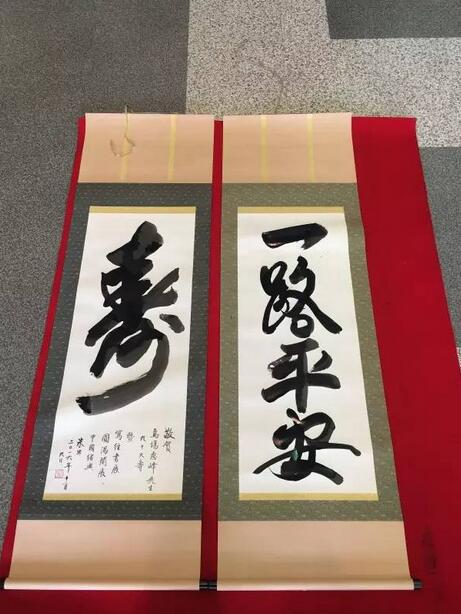 一路平安
壽
敬賀
馬場惠峰先生
九十大壽
暨
寫經書展
圓滿開展。
中國紹興
朱
二〇一六年